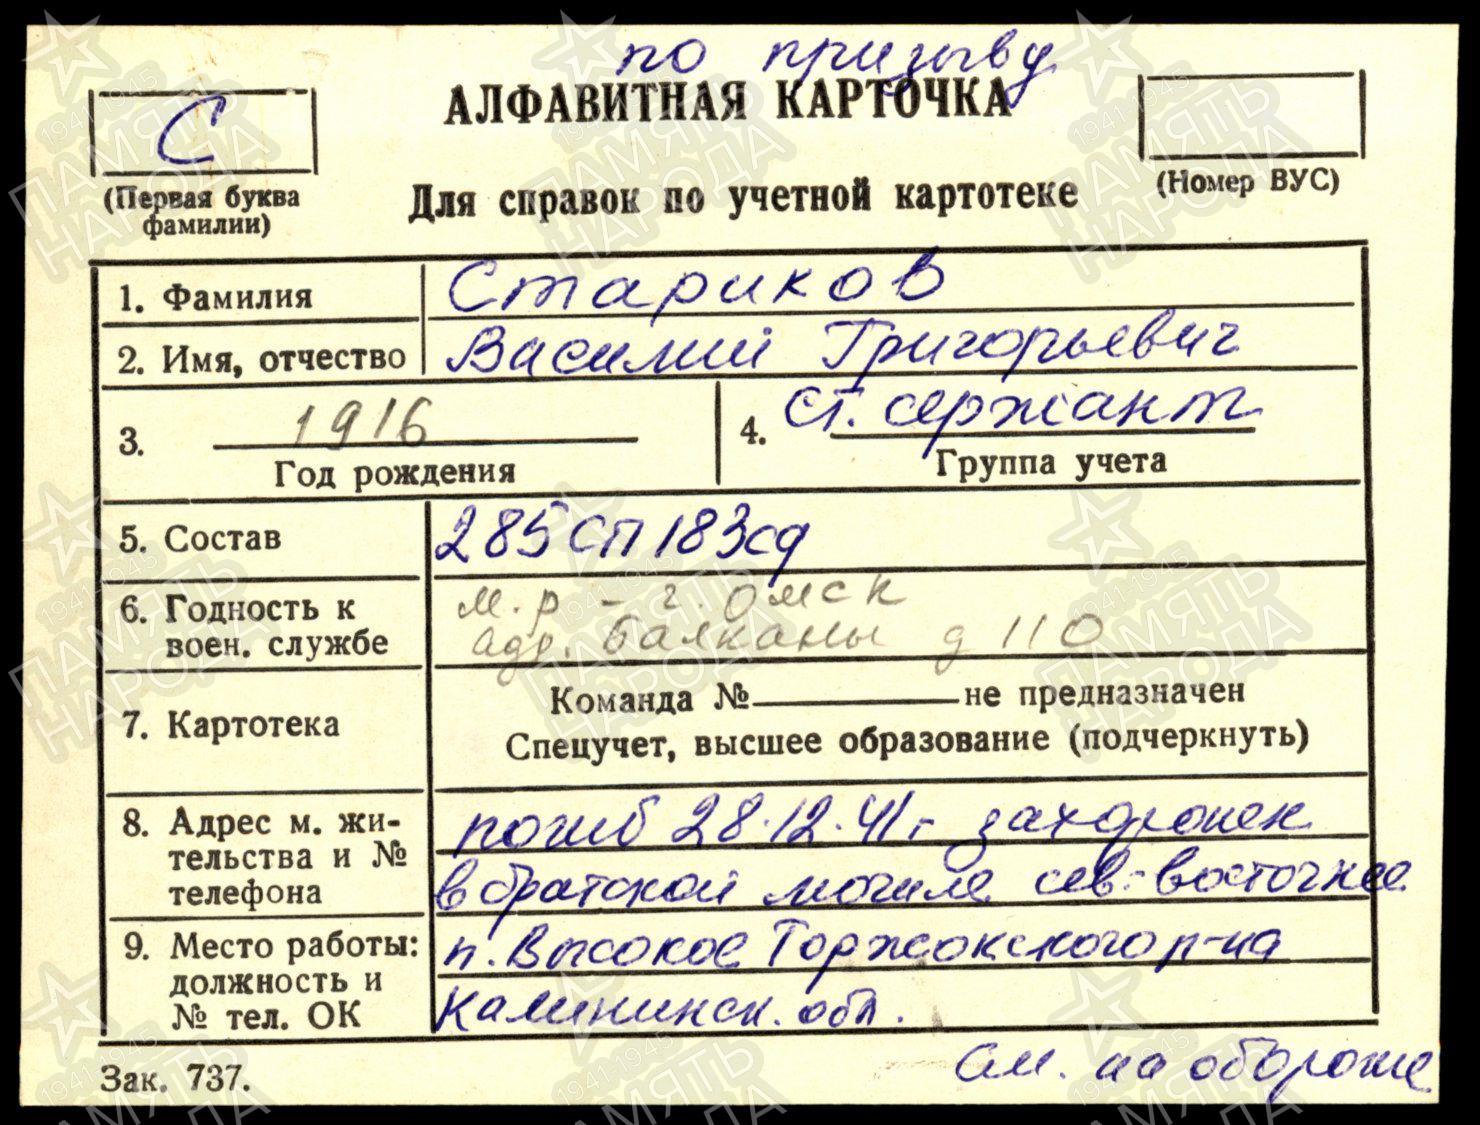 по призыву
АЛФАВИТНАЯ КАРТОЧКА
С
(Первая буква
фамилии)
Для справок по учетной картотеке
(Номер ВУС)
1. Фамилия Стариков
2. Имя, отчество Василий Григорьевич
3. 1916
Год рождения
4. ст. сержант
Группа учета
5. Состав 285 СП 183 сд
6. Годность к
воен. службе
м.р - г. Омск
адр. Балканы д 110
7. Картотека
Команда № не предназначен
Спецучет, высшее образование (подчеркнуть)
8. Адрес м. жи-
тельства и №
телефона
погиб 28.12.41г захоронен
в братской могиле сев-восточнее
9. Место работы:
должность и
№ тел. ОК
п. Высокое Торжокского р-на
Калининск. обл.
Зак. 737.
См. на обороте
ПАМЯТЬ
НАРОДА
1941-1945